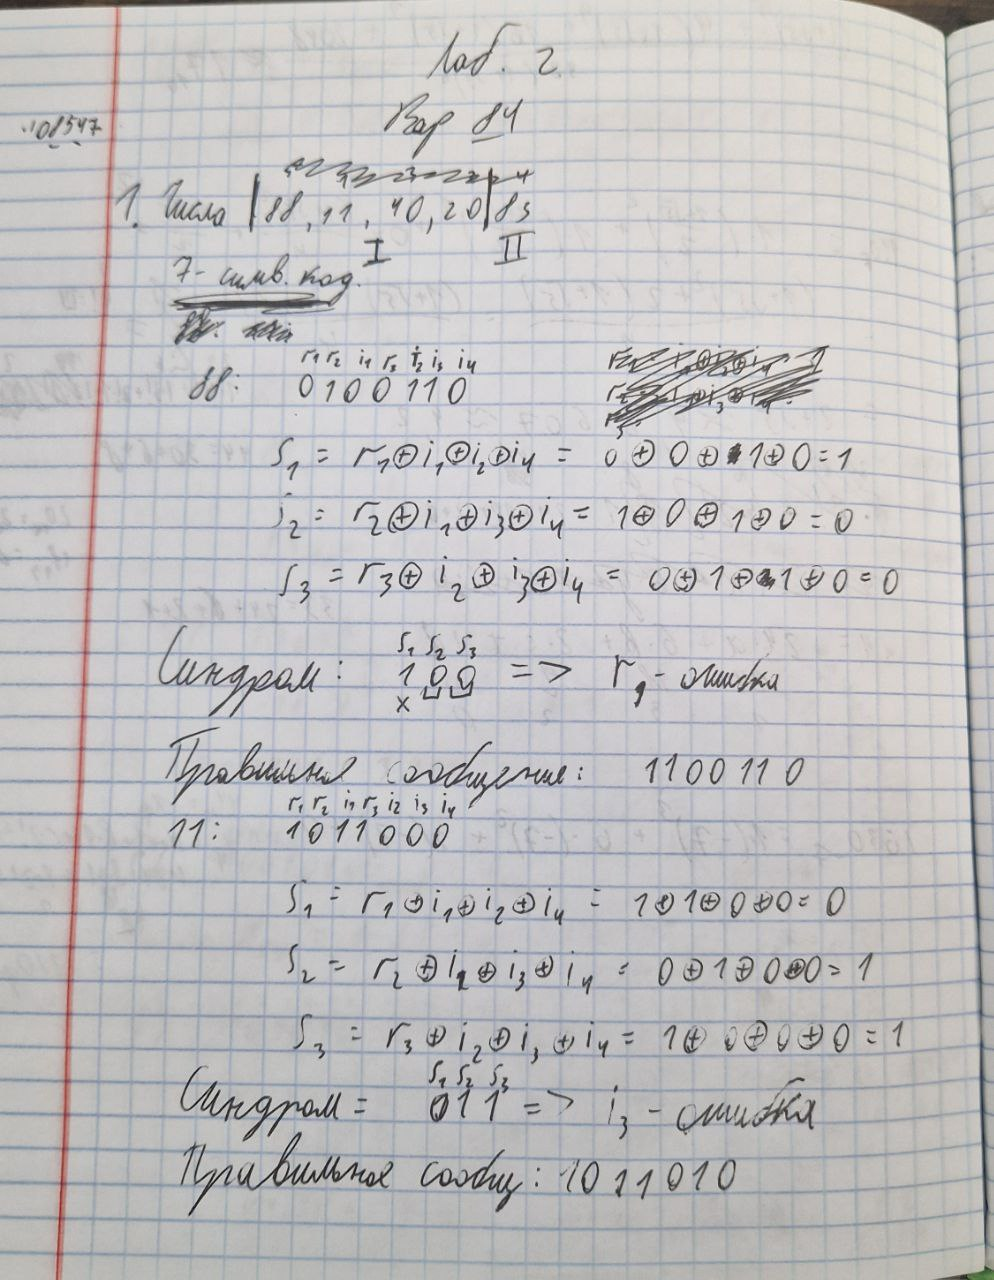 Лаб. 2
108547
Вар 84
1. Числа | 88, 11, 40, 20 | 83
I II
7-симв. код.
r₁ r₂ i₁ r₃ i₂ i₃ i₄
88: 0100110
S₁ = r₁⊕i₁⊕i₂⊕i₄ = 0⊕0⊕1⊕0=1
S₂ = r₂⊕i₁⊕i₃⊕i₄ = 1⊕0⊕1⊕0=0
S₃ = r₃⊕i₂⊕i₃⊕i₄ = 0⊕1⊕1⊕0=0
S₁ S₂ S₃
Синдром: 100 => r₁ - ошибка
x
Правильное сообщение: 1100110
r₁ r₂ i₁ r₃ i₂ i₃ i₄
11: 1011000
S₁ = r₁⊕i₁⊕i₂⊕i₄ = 1⊕1⊕0⊕0=0
S₂ = r₂⊕i₁⊕i₃⊕i₄ = 0⊕1⊕0⊕0=1
S₃ = r₃⊕i₂⊕i₃⊕i₄ = 1⊕0⊕0⊕0=1
S₁ S₂ S₃
Синдром = 011 => i₃ - ошибка
Правильное сообщ: 1011010